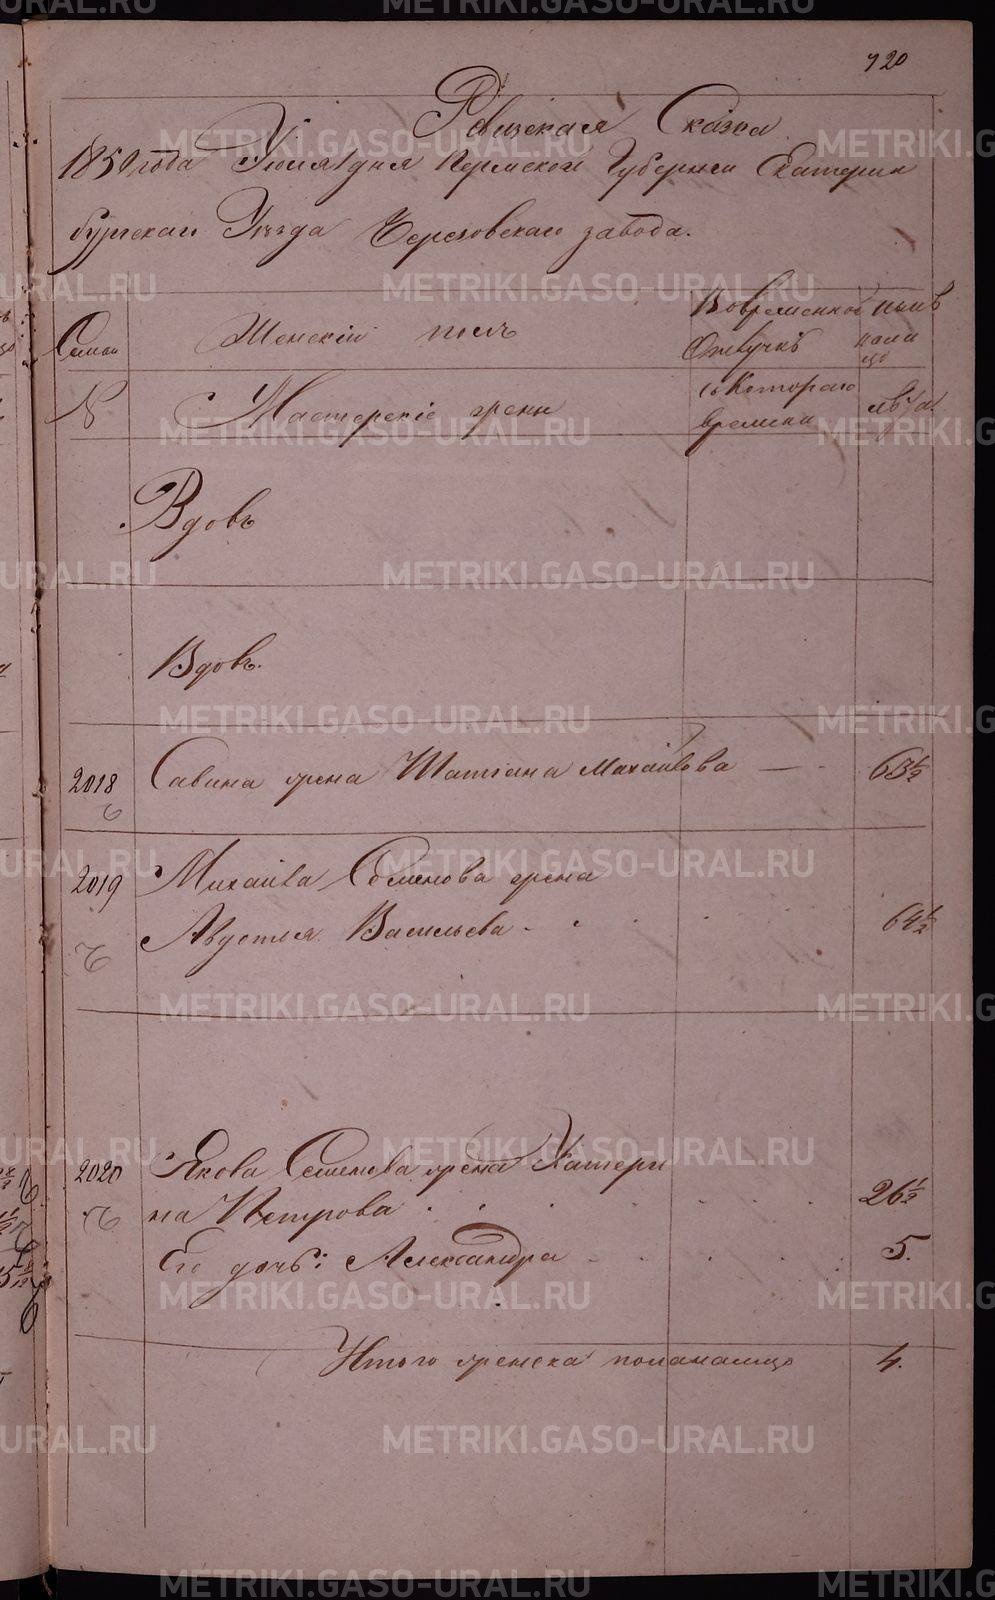 720
Ревизская Сказка
1850 года Июля дня Пермской Губернии Екатерин
бургскаго Уѣзда Березовскаго завода.
Семьи
Женскій полъ
Во временной
Отлучкѣ
нынѣ
нали
цо
№
Мастерскіе жены
съ Котораго
времени
лѣта
Вдовъ
Вдовъ.
2018 Савина жена Татіана Михайлова 63½
2019 Михаила Семенова жена
Августья Васильева 64½
2020 Якова Семенова жена Катери
на Петрова 26½
Его дочь: Александра 5.
Итого женска пола налицо 4.
METRIKI.GASO-URAL.RU